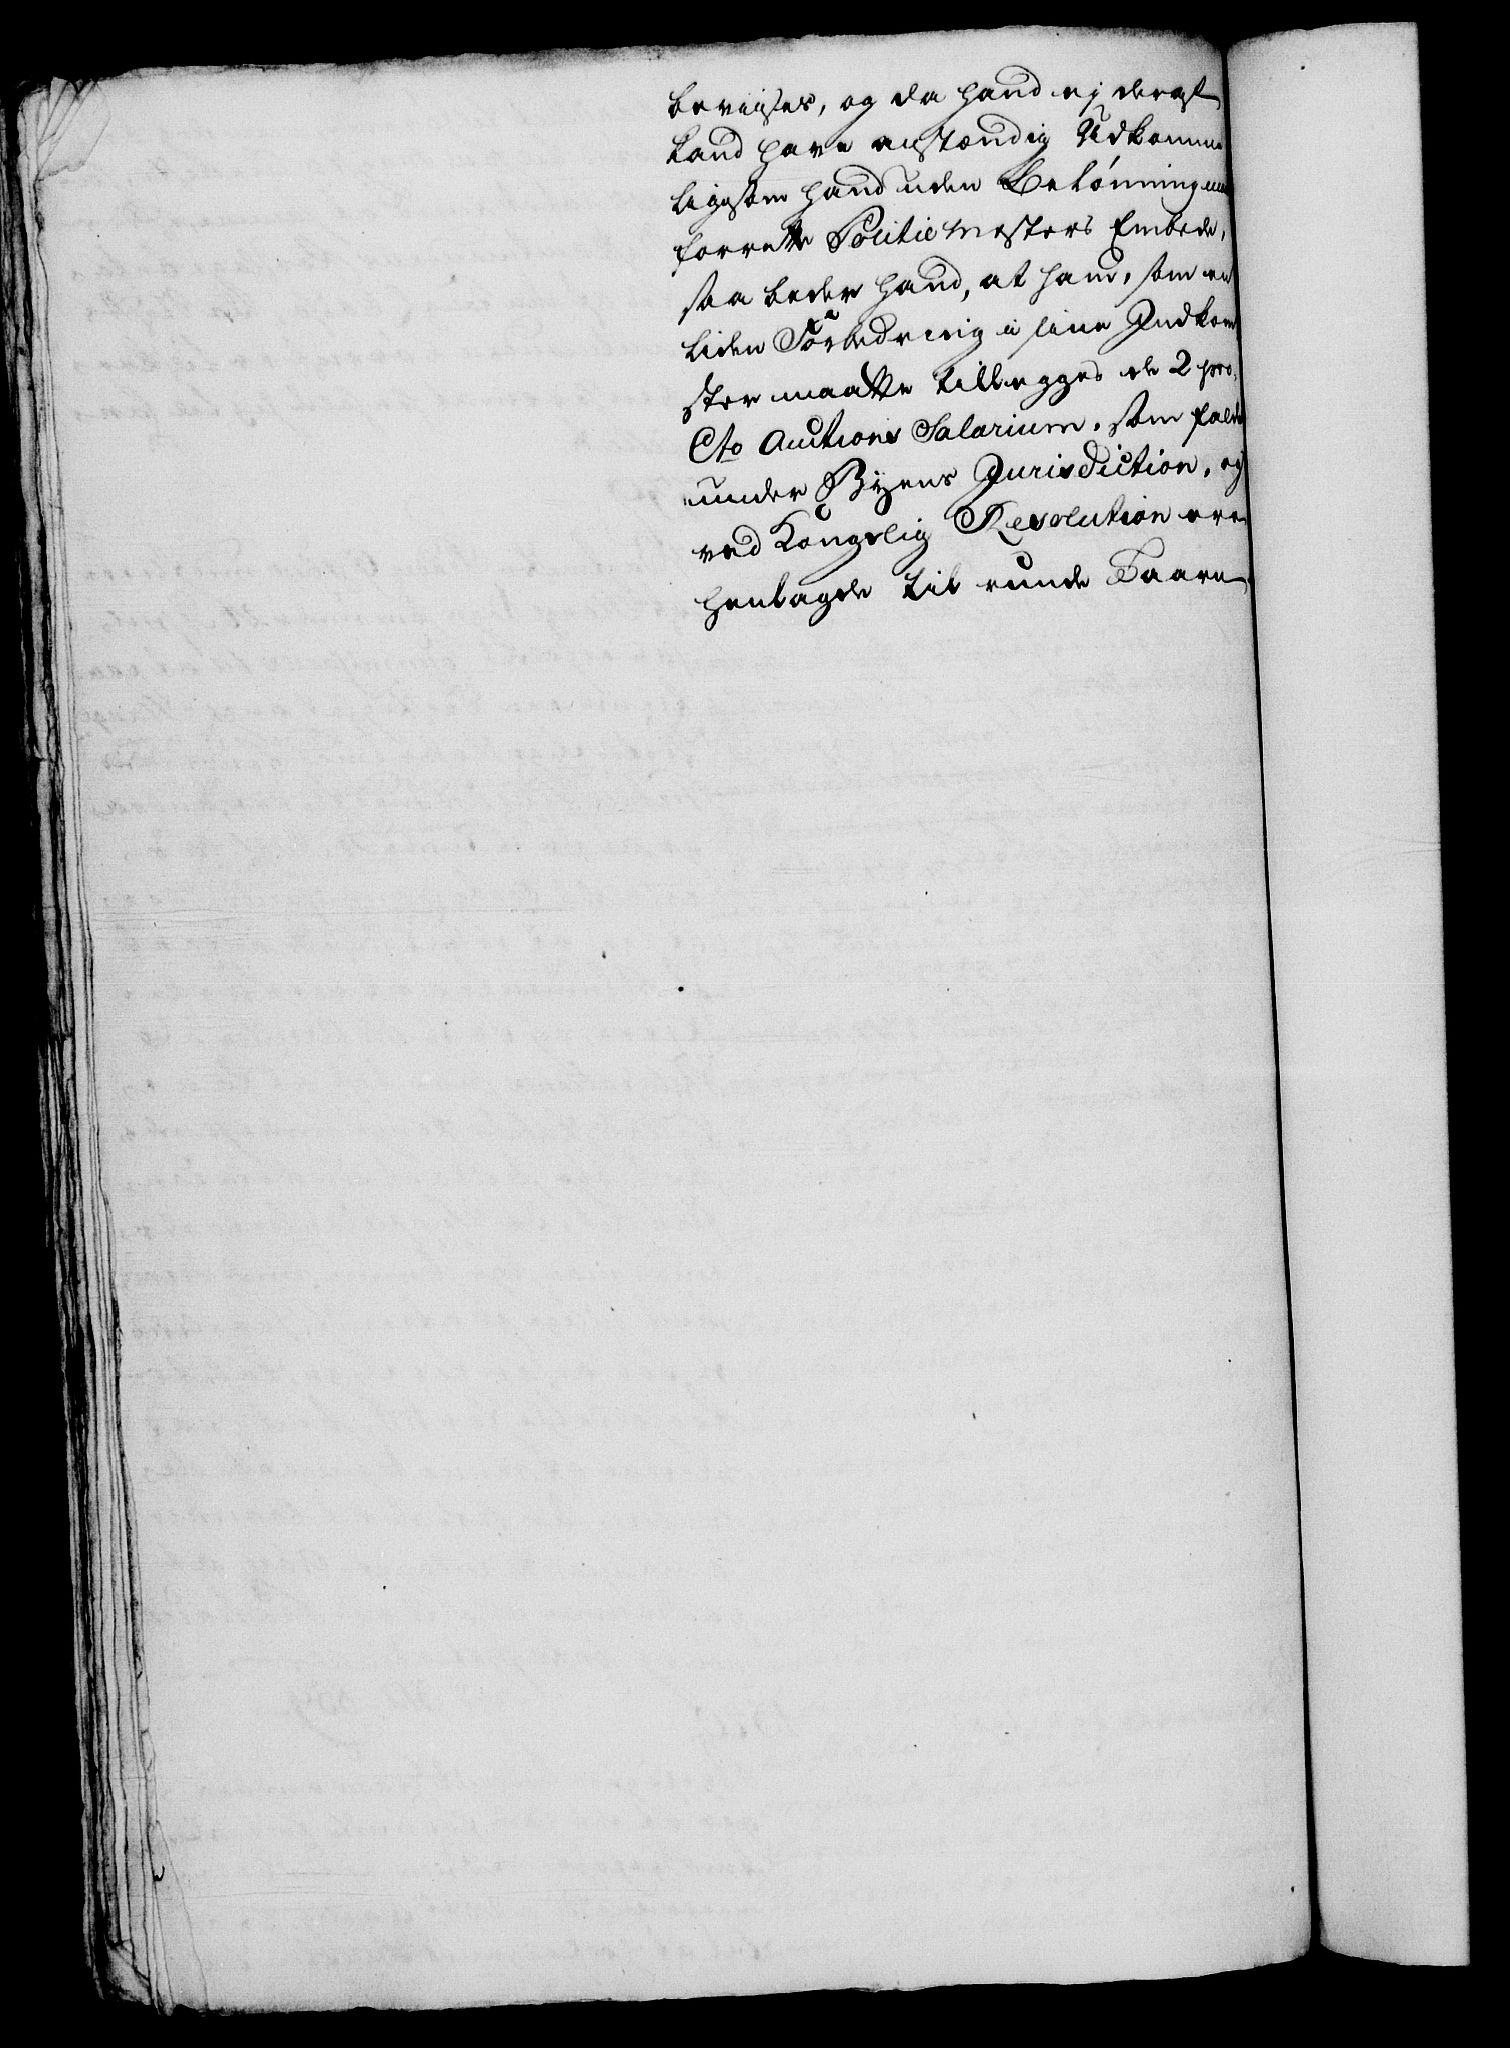 bevises, og da hand ej deraf
kand have anstændig Udkomme
ligesom hand uden Belønning maa
forrette Politiemesters Embede,
saa beder hand, at ham, som en
liden Forbedring i sine Indkom
ster maatte tillegges de 2 pro
Cto Auctions Salarium, som falde
under Byens Jurisdiction, og
ved Kongelig Resolution ere
henlagde til runde Taarn